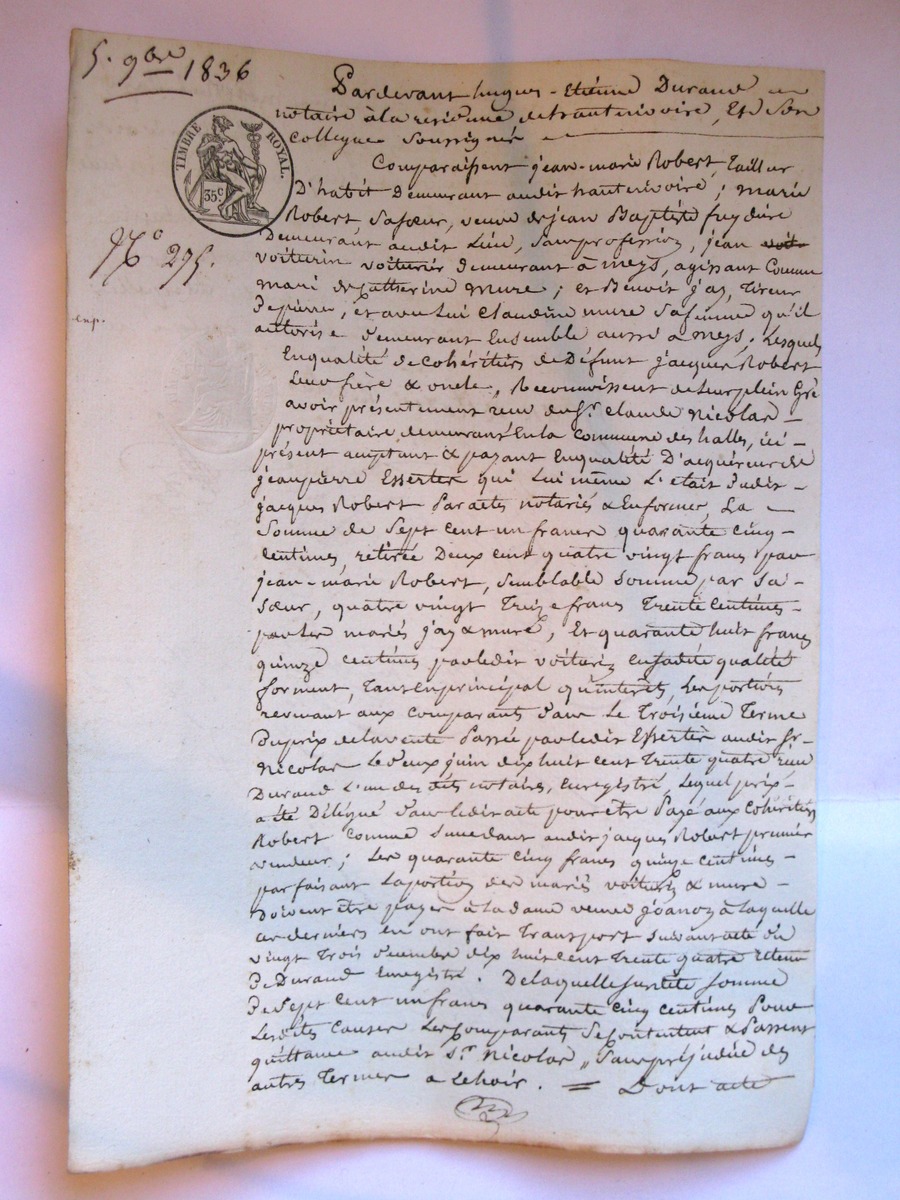 5. 9bre 1836
Pardevant hugues-Etiénne Durand
notaire à la residence de hauterivoire, Et Son
collegue Soussignés
TIMBRE ROYAL.
35c
Comparaissent jean-marie Robert, Tailleur
D'habit Demeurant audit hauterivoire; marie
Robert, Sa sœur, veuve de jean Baptiste
Demeurant audit Lieu, Sans profession, jean voit
No 275.
voiturin voiturier demeurant à meys, agissant Comme
mari de Catherine mure; et Benoit jay, Tireur
De pierre, et avec Lui Claudine mure Sa femme qu'il
exp.
autorise demeurant Ensemble aussi a meys; Lesquels
En qualité de cohéritiers de Défunt jacques Robert
Leur frère & oncle, Reconnoissent de Leur plein Gré
avoir présentement reçu du Sr. Claude Nicolas
propriétaire demeurant En la commune des halles, ici
présent acceptant & payant En qualité D'acquéreur de
jean pierre Essertier qui Lui même L'etait dudit
jacques Robert Par actes notariés & En forme, La
Somme de Sept cent un francs quarante cinq
centimes, retirée Deux cent quatre vingt francs par
jean-marie Robert, Semblable Somme par Sa
Sœur, quatre vingt Treize francs Trente Centimes
par les mariés jay & mure, Et quarante huit francs
quinze centimes par ledit voiturin en sadite qualité
forment, Tant en principal qu'intérêts, Les portions
revenant aux comparants dans Le Troisième Terme
Du prix de la vente Passée par ledit Essertier audit Sr
Nicolas Le deux juin dix huit cent Trente quatre reçu
Durand L'un des dits notaires, Enregistré, Lequel prix
a été Délégué dans ledit acte pour être Payé aux Cohéritiers
Robert Comme Succedant audit jacques Robert premier
vendeur; Les quarante cinq francs quinze centimes
parfaisant La portion des mariés voiturin & mure
Doivent être payés à La dame veuve joanoz à Laquelle
ces derniers en ont fait Transport Suivant acte du
vingt Trois décembre dix huit cent Trente quatre
De Durand Enregistré. De laquelle Susdite Somme
De Sept cent un francs quarante cinq centimes Pour
Lesdites Causes Les Comparants Se contentent & Passent
quittance audit Sr Nicolas, Sans préjudice des
autres Termes a Echoir. = Dont acte